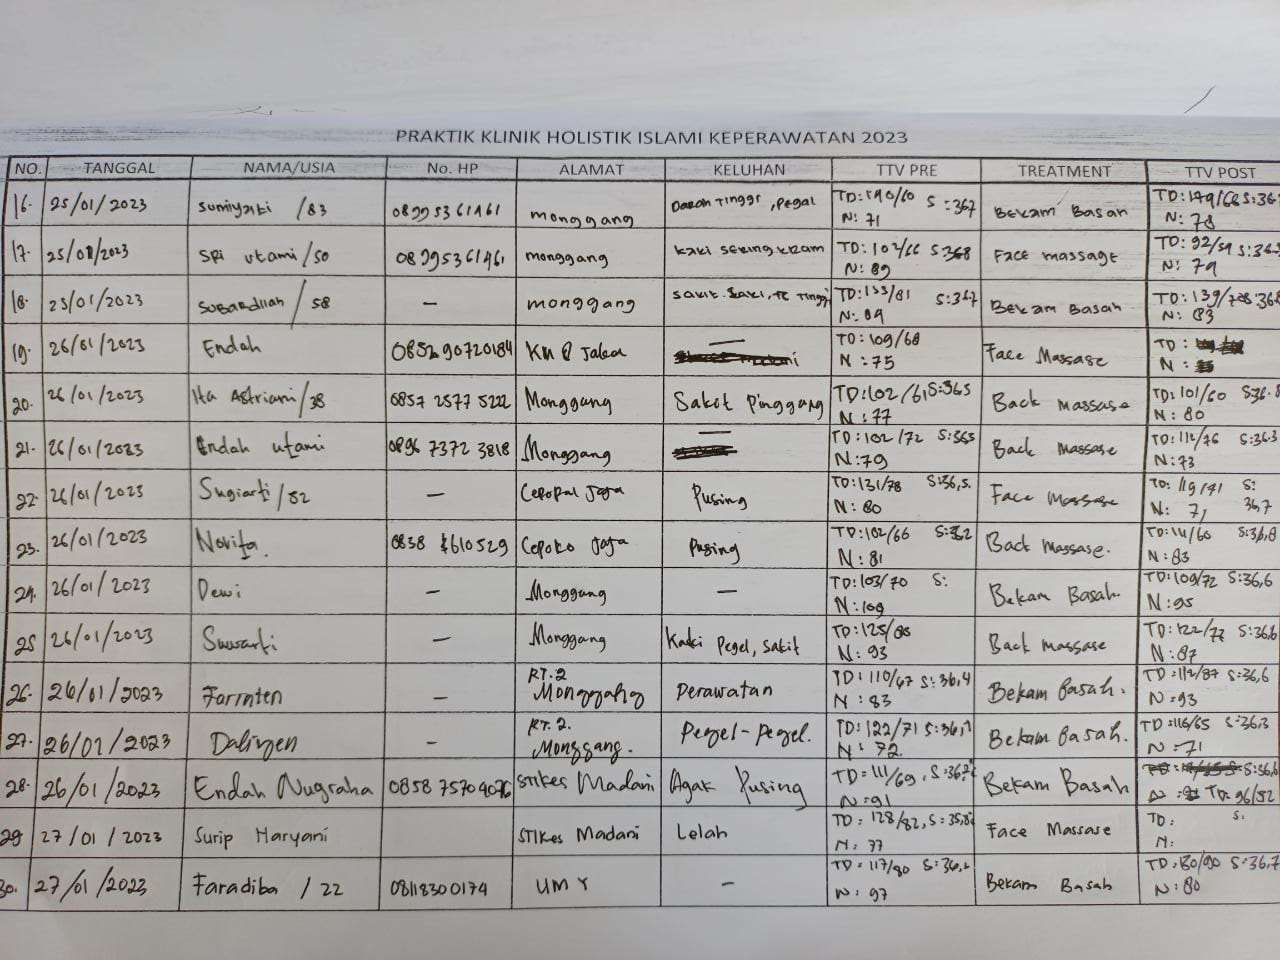 PRAKTIK KLINIK HOLISTIK ISLAMI KEPERAWATAN 2023
NO. TANGGAL NAMA/USIA No. HP ALAMAT KELUHAN TTV PRE TREATMENT TTV POST
16. 25/01/2023 Sumiyati /83 08995361461 monggang Darah Tinggi, Pegal TD: 190/60 S: 367 N: 71 Bekam Basah TD: 179/66 S: 36 N: 78
17. 25/01/2023 Sri utami /50 08995361461 monggang kaki sering kram TD: 102/66 S: 368 N: 89 Face massage TD: 92/59 S: 36.5 N: 79
18. 25/01/2023 58 – monggang Sakit kaki, TD Tinggi TD: 133/81 S: 367 N: 89 Bekam Basah TD: 139/78 S: 36.8 N: 83
19. 26/01/2023 Endah 085290720184 – TD: 109/68 N: 75 Face Massase TD: N:
20. 26/01/2023 Ita Astriani /38 0857 2577 5222 Monggang Sakit Pinggang TD: 102/61 S: 365 N: 77 Back massase TD: 101/60 S: 36.8 N: 80
21. 26/01/2023 Endah utami 0896 7372 3818 Monggang – TD: 102/72 S: 365 N: 79 Back massase TD: 112/76 S: 36.3 N: 73
22. 26/01/2023 Sugiarti /52 – Jaja Pusing TD: 131/78 S: 36,5. N: 80 Face Massase TD: 119/71 S: 36,7 N: 7,
23. 26/01/2023 Novita. 0838 Cepoko Jaja Pusing TD: 102/66 S: 362 N: 81 Back Massase. TD: 111/60 S: 36,8 N: 83
24. 26/01/2023 Dewi – Monggang – TD: 103/70 S: N: 109 Bekam Basah TD: 109/72 S: 36,6 N: 95
25 26/01/2023 Suwarti – Monggang Kaki Pegel, Sakit TD: 125/85 N: 93 Back massase TD: 122/77 S: 36,6 N: 87
26. 26/01/2023 Farinten – RT. 2 Monggang Perawatan TD: 110/67 S: 36,4 N: 83 Bekam Basah. TD: 112/87 S: 36,6 N: 93
27. 26/01/2023 Daliyen – RT. 2. Monggang. Pegel-Pegel. TD: 122/71 S: 36,7 N: 72 Bekam Basah. TD: 116/65 S: 36,3 N: 71
28. 26/01/2023 Endah Nugraha 0858 STIKes Madani Agak Pusing TD= 111/69, S: 36,7 N= 91 Bekam Basah S: 36,6 TD: 96/52
29 27/01/2023 Surip Haryani STIKes Madani Lelah TD= 128/82, S: 35,8 N: 77 Face Massase TD: S: N:
30. 27/01/2023 Faradiba / 22 08118300174 UMY – TD= 117/80 S: 36,2 N: 97 Bekam Basah TD: 130/90 S: 36,7 N: 80